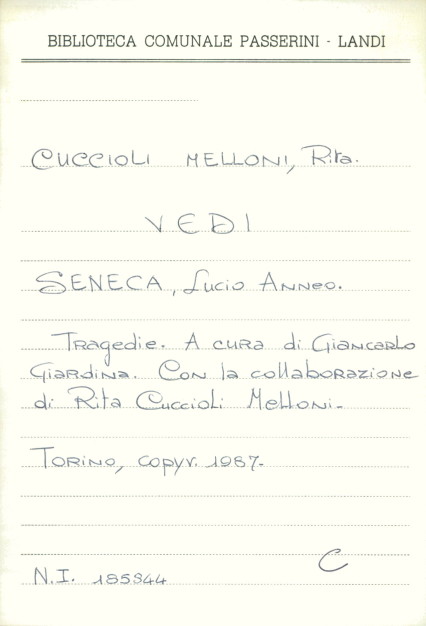 BIBLIOTECA COMUNALE PASSERINI - LANDI
CUCCIOLI MELLONI, Rita.
VEDI
SENECA, Lucio Anneo.
Tragedie. A cura di Giancarlo
Giardina. Con la collaborazione
di Rita Cuccioli Melloni.
TORINO, copyr. 1987.
C
N.I. 185844